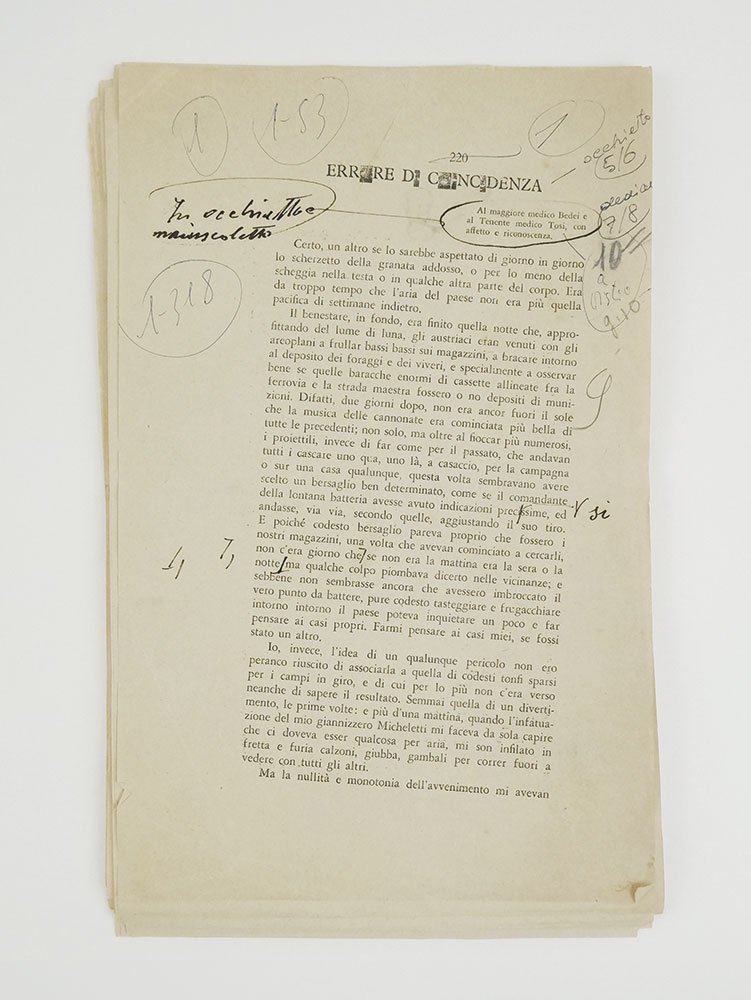 1
1-53
1
220
occhietto
5/6
ERRORE DI COINCIDENZA
In occhietto e
maiuscoletto
Al maggiore medico Bedei e
al Tenente medico Tosi, con
affetto e riconoscenza.
dedica
7/8
10
1-318
Certo, un altro se lo sarebbe aspettato di giorno in giorno
lo scherzetto della granata addosso, o per lo meno della
scheggia nella testa o in qualche altra parte del corpo. Era
da troppo tempo che l'aria del paese non era più quella
pacifica di settimane indietro.
Il benestare, in fondo, era finito quella notte che, appro-
fittando del lume di luna, gli austriaci eran venuti con gli
areoplani a frullar bassi bassi sui magazzini, a bracare intorno
al deposito dei foraggi e dei viveri, e specialmente a osservar
bene se quelle baracche enormi di cassette allineate fra la
ferrovia e la strada maestra fossero o no depositi di muni-
zioni. Difatti, due giorni dopo, non era ancor fuori il sole
che la musica delle cannonate era cominciata più bella di
tutte le precedenti; non solo, ma oltre al fioccar più numerosi,
i proiettili, invece di far come per il passato, che andavan
tutti i cascare uno qua, uno là, a casaccio, per la campagna
o sur una casa qualunque, questa volta sembravano avere
scelto un bersaglio ben determinato, come se il comandante
della lontana batteria avesse avuto indicazioni precissime, ed
si
andasse, via via, secondo quelle, aggiustando il suo tiro.
E poiché codesto bersaglio pareva proprio che fossero i
nostri magazzini, una volta che avevan cominciato a cercarli,
non c'era giorno che se non era la mattina era la sera o la
notte ma qualche colpo piombava dicerto nelle vicinanze; e
sebbene non sembrasse ancora che avessero imbroccato il
vero punto da battere, pure codesto tasteggiare e frugacchiare
intorno intorno il paese poteva inquietare un poco e far
pensare ai casi propri. Farmi pensare ai casi miei, se fossi
stato un altro.
Io, invece, l'idea di un qualunque pericolo non ero
peranco riuscito di associarla a quella di codesti tonfi sparsi
per i campi in giro, e di cui per lo più non c'era verso
neanche di sapere il resultato. Semmai quella di un diverti-
mento, le prime volte: e più d'una mattina, quando l'infatua-
zione del mio giannizzero Micheletti mi faceva da sola capire
che ci doveva esser qualcosa per aria, mi son infilato in
fretta e furia calzoni, giubba, gambali per correr fuori a
vedere con tutti gli altri.
Ma la nullità e monotonia dell'avvenimento mi avevan